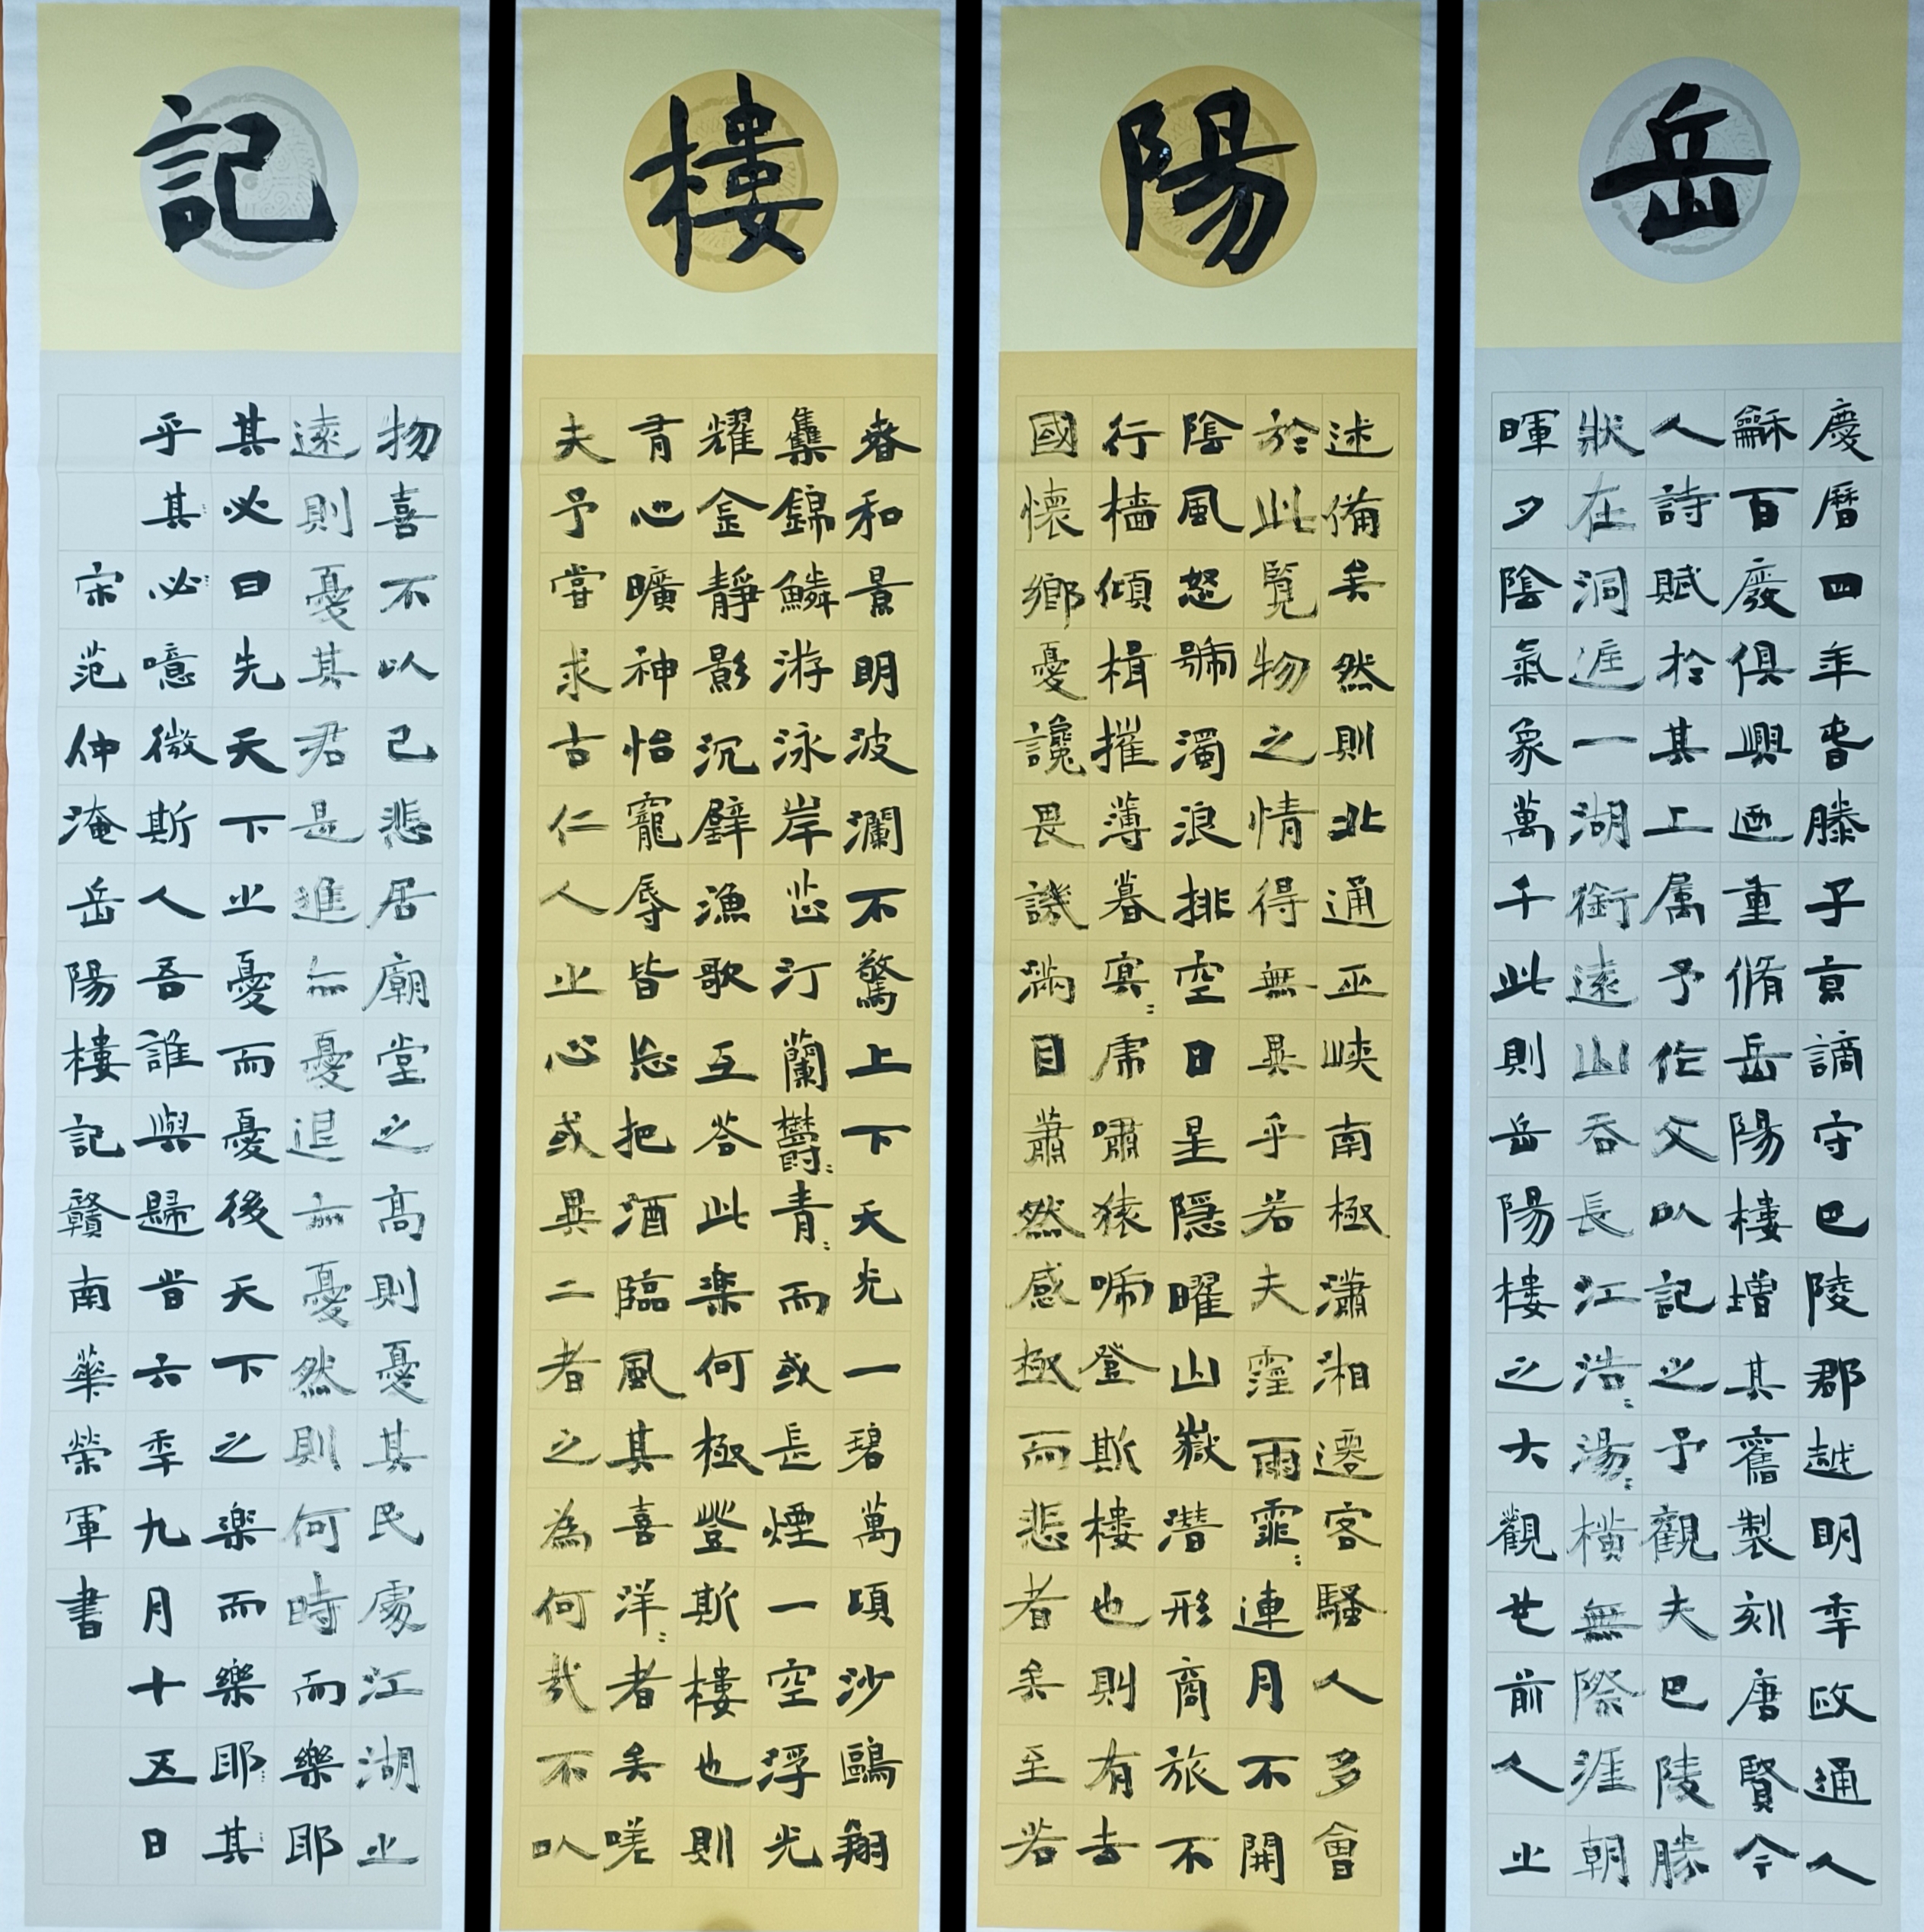 岳
慶曆四年春滕子京謫守巴陵郡越明年政通人
龢百廢俱興廼重脩岳陽樓增其舊製刻唐賢今
人詩賦於其上属予作文以記之予觀夫巴陵勝
狀在洞庭一湖銜遠山吞長江浩〻湯〻橫無際涯朝
暉夕陰氣象萬千此則岳陽樓之大觀也前人之
陽
述備矣然則北通巫峽南極瀟湘遷客騷人多會
於此覧物之情得無異乎若夫霪雨霏〻連月不開
陰風怒號濁浪排空日星隱曜山嶽潛形商旅不
行檣傾楫摧薄暮冥〻虎嘯猿啼登斯樓也則有去
國懷鄉憂讒畏譏滿目蕭然感極而悲者矣至若
樓
春和景明波瀾不驚上下天光一碧萬頃沙鷗翔
集錦鱗游泳岸芷汀蘭欝〻青〻而或長煙一空浮光
耀金靜影沉璧漁歌互荅此楽何極登斯樓也則
有心曠神怡寵辱皆忘把酒臨風其喜洋〻者矣嗟
夫予嘗求古仁人之心或異二者之為何哉不以
記
物喜不以己悲居廟堂之高則憂其民處江湖之
遠則憂其君是進亦憂退亦憂然則何時而樂耶
其必曰先天下之憂而憂後天下之楽而樂耶其
乎其必噫微斯人吾誰與歸昔六年九月十五日
宋范仲淹岳陽樓記贛南華榮軍書